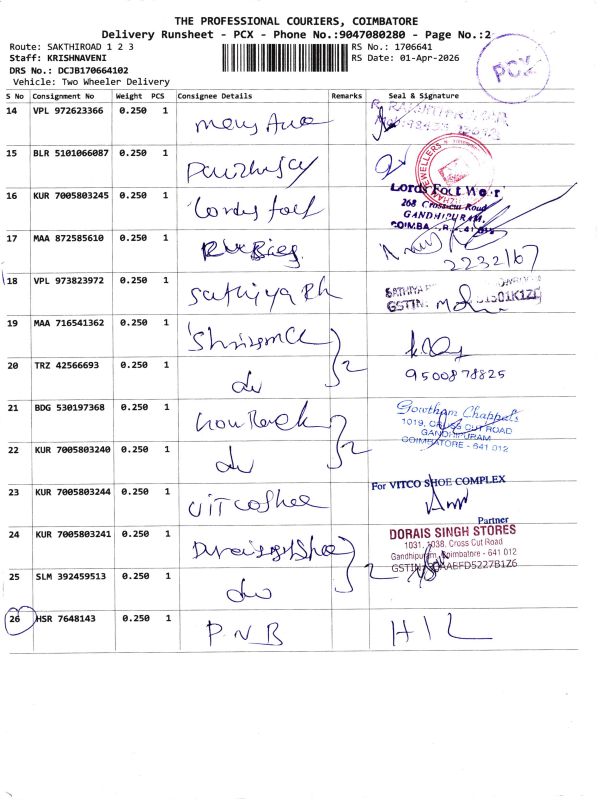 THE PROFESSIONAL COURIERS, COIMBATORE
Delivery Runsheet - PCX - Phone No.:9047080280 - Page No.:2
Route: SAKTHIROAD 1 2 3
RS No.: 1706641
Staff: KRISHNAVENI
RS Date: 01-Apr-2026
DRS No.: DCJB170664102
Vehicle: Two Wheeler Delivery
PCX
S No Consignment No Weight PCS Consignee Details Remarks Seal & Signature
14 VPL 972623366 0.250 1
15 BLR 5101066087 0.250 1
JEWELLERS
16 KUR 7005803245 0.250 1 Lords foot
Lords Foot Wear
268 Cross Cut Road
GANDHIPURAM,
17 MAA 872585610 0.250 1
2232167
18 VPL 973823972 0.250 1 Sathiya Rh
GSTIN:
19 MAA 716541362 0.250 1
2
20 TRZ 42566693 0.250 1 do
9500878825
21 BDG 530197368 0.250 1
2
Gowtham Chappals
1019, CROSS CUT ROAD
GANDHIPURAM
COIMBATORE - 641 012
22 KUR 7005803240 0.250 1 do
23 KUR 7005803244 0.250 1 VITCOShee
For VITCO SHOE COMPLEX
Partner
24 KUR 7005803241 0.250 1
2
DORAIS SINGH STORES
1031, 1038, Cross Cut Road
Gandhipuram, Coimbatore - 641 012
25 SLM 392459513 0.250 1 do
26 HSR 7648143 0.250 1 P N B